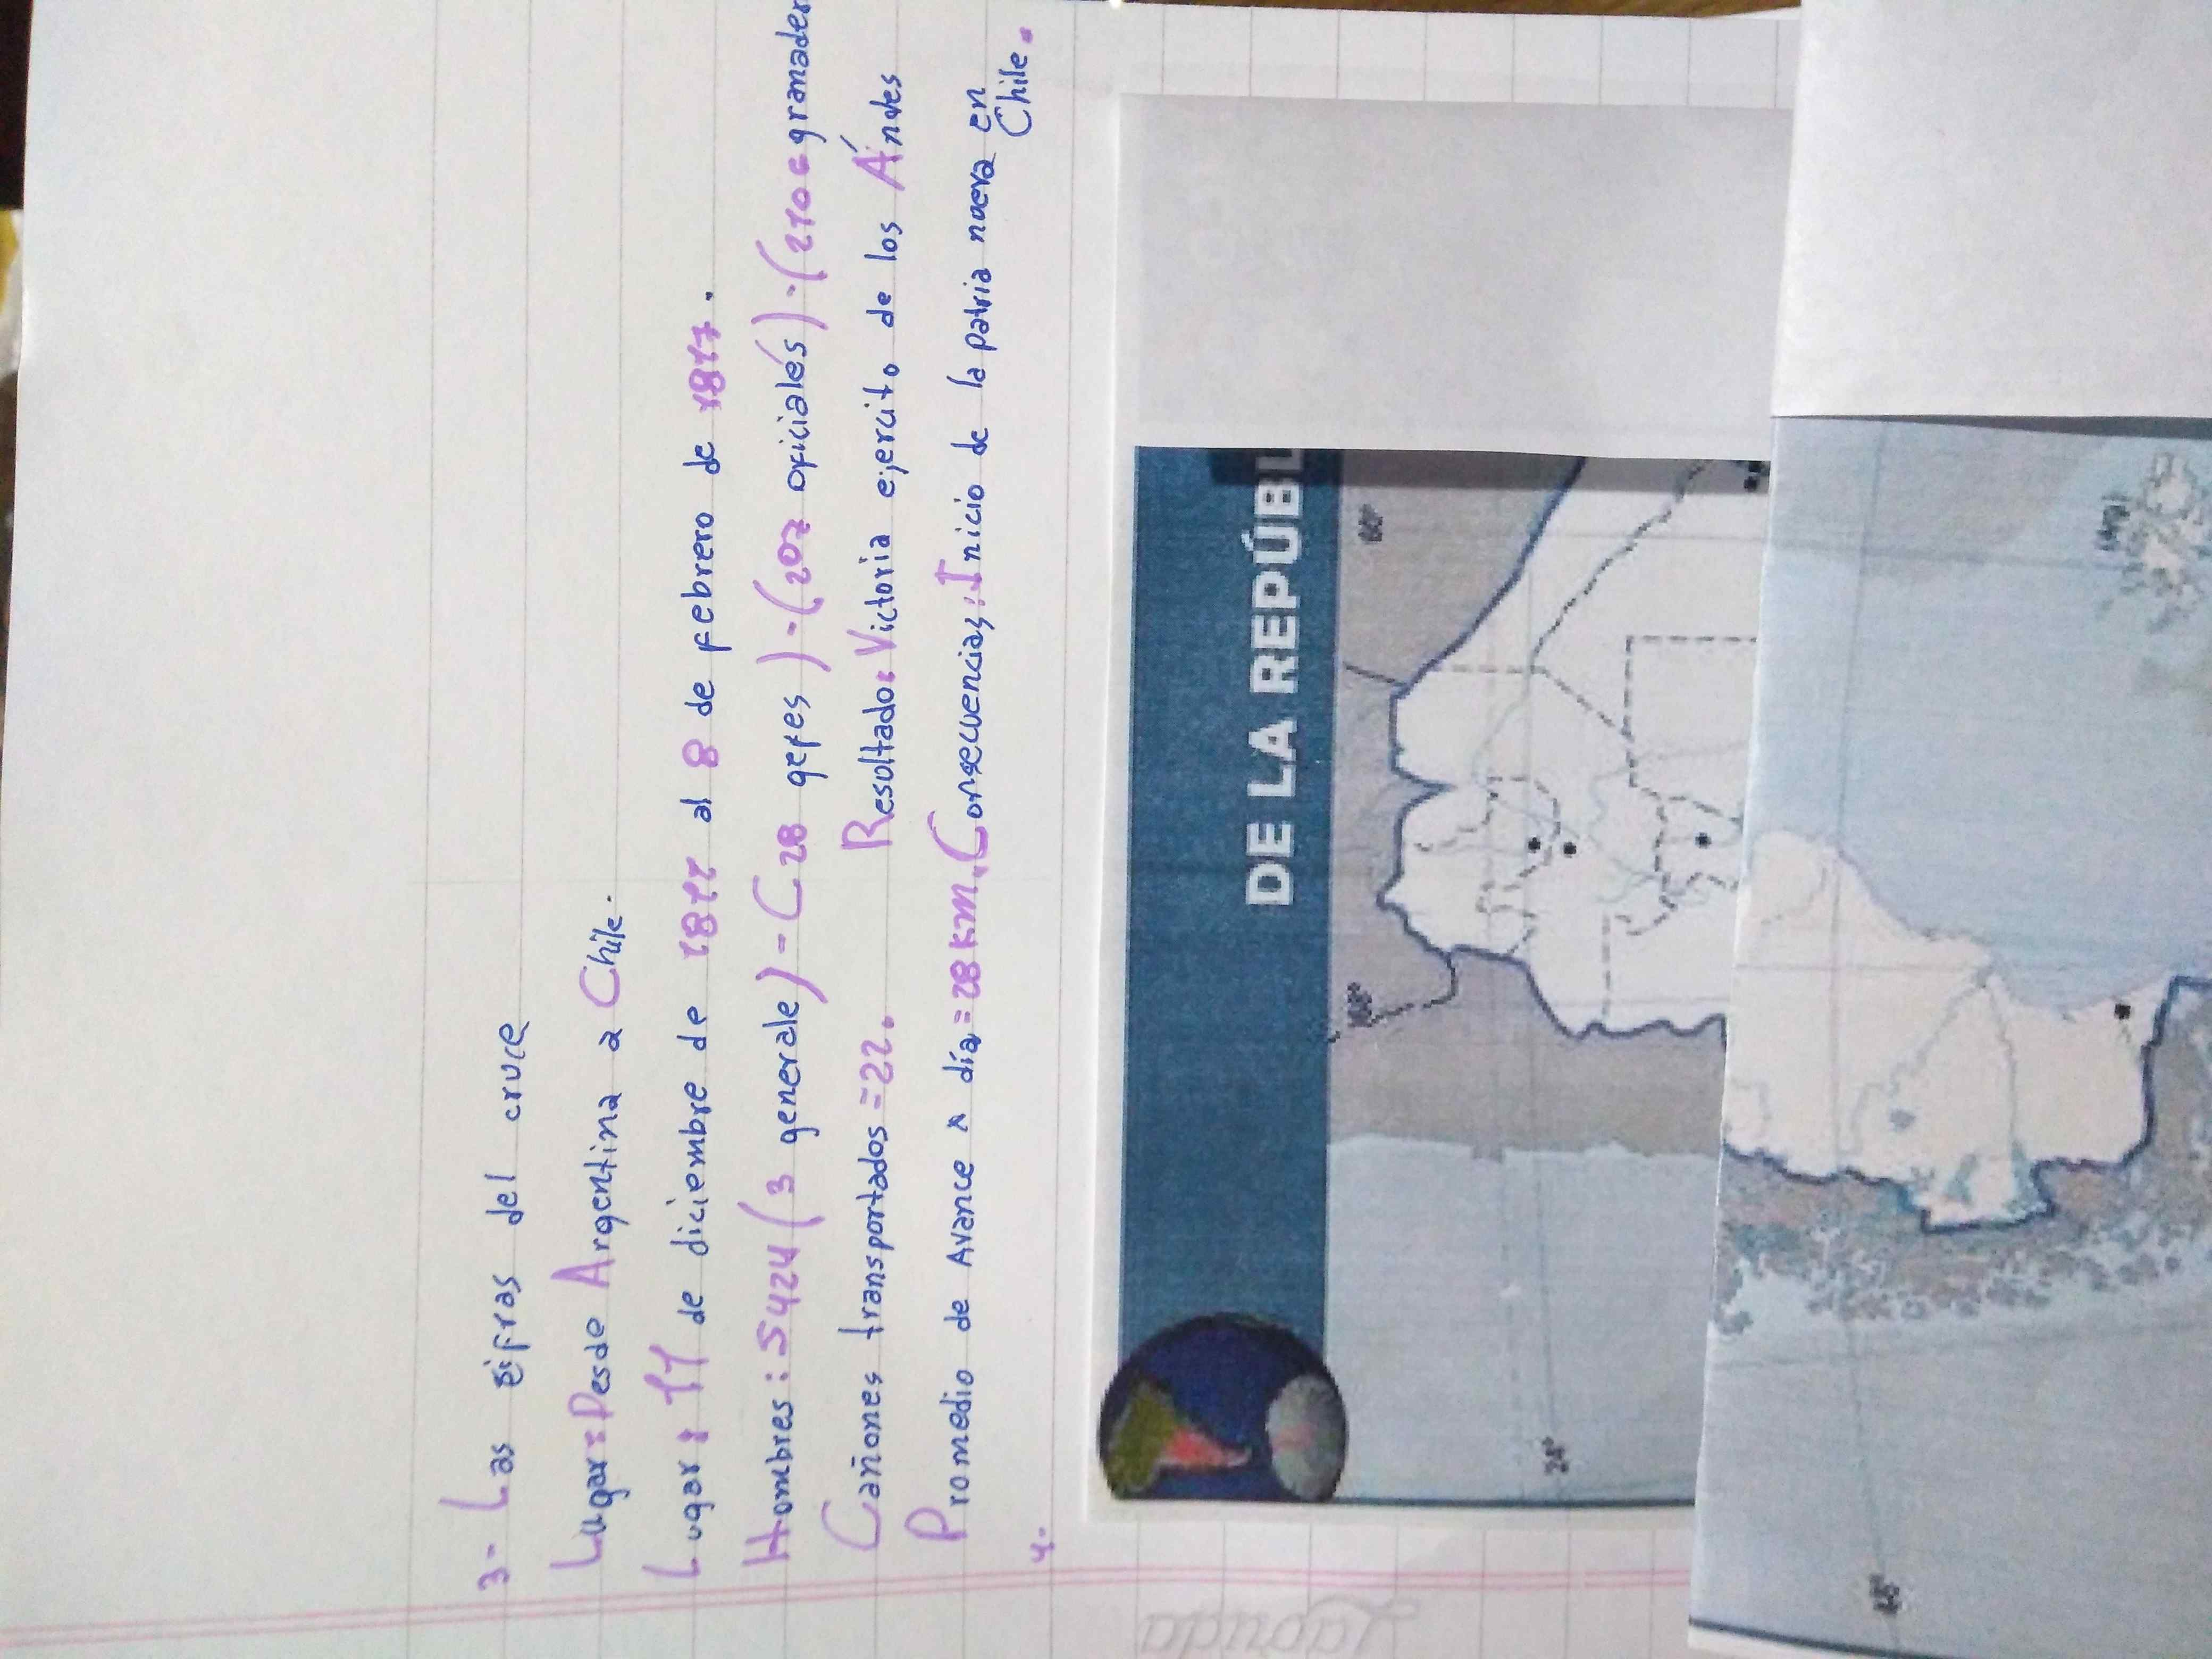 3- Las cifras del cruce
Lugar: Desde Argentina a Chile.
Lugar: 17 de diciembre de 1817 al 8 de febrero de 1817.
Hombres: 5424 (3 generale) - (28 gefes) - (207 oficialés) - (
Cañones transportados = 22. Resoltado: Victoria ejercito de los Ándes
Promedio de Avance x día = 28 km. Consecuencias: Inicio de la patria nueva en
Chile.
4.
DE LA REPÚBL
60°
68°
24°
Laprida